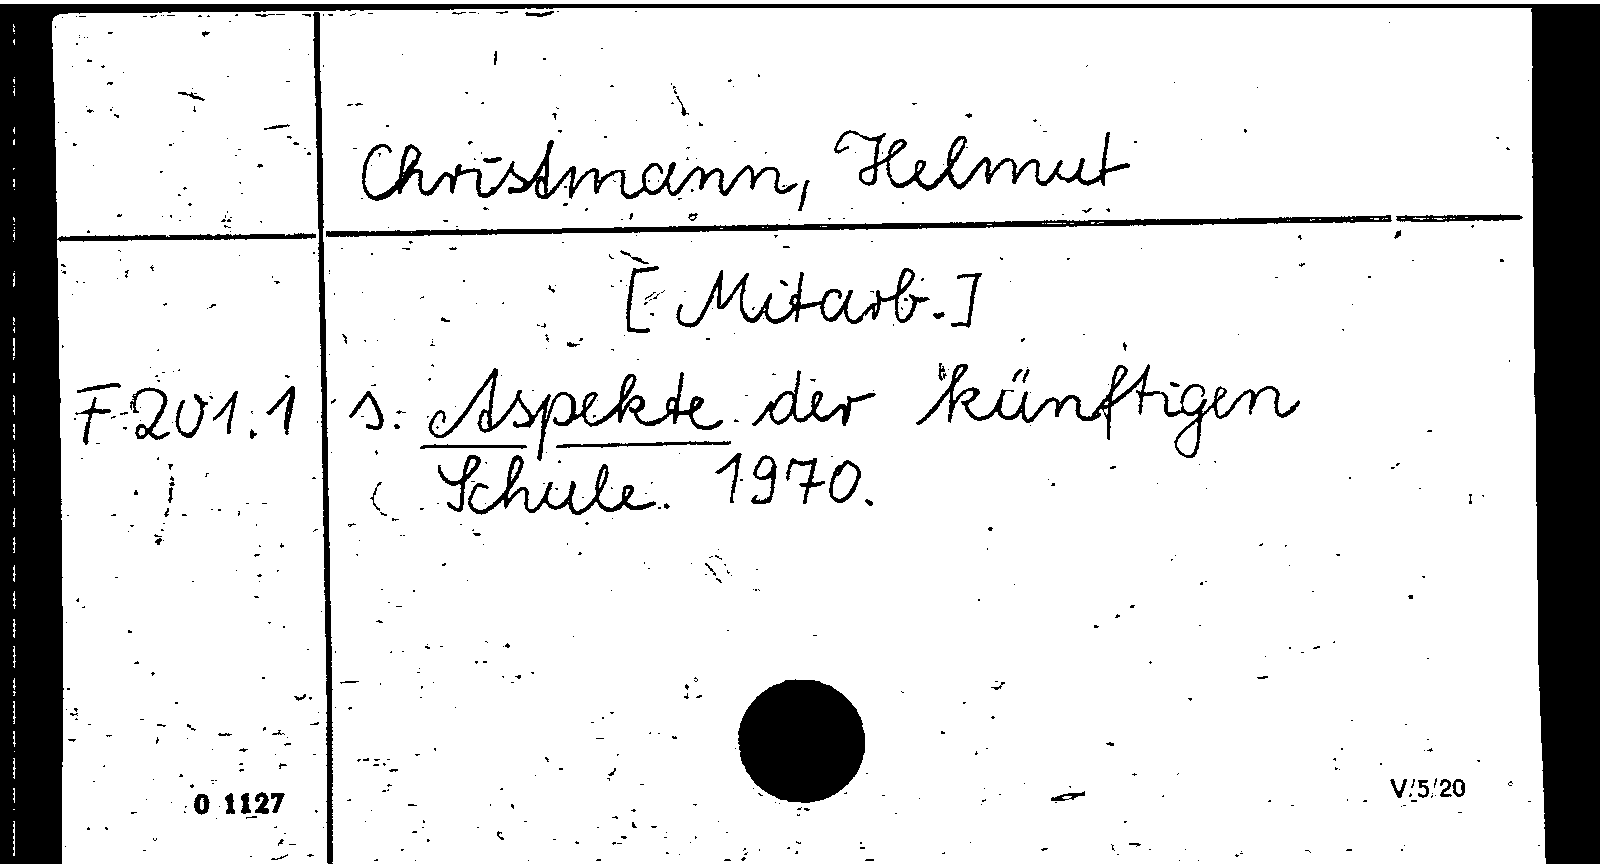 Christmann, Helmut
[Mitarb.]
F 201.1 s. Aspekte der künftigen
Schule. 1970.
O 1127
V/5/20